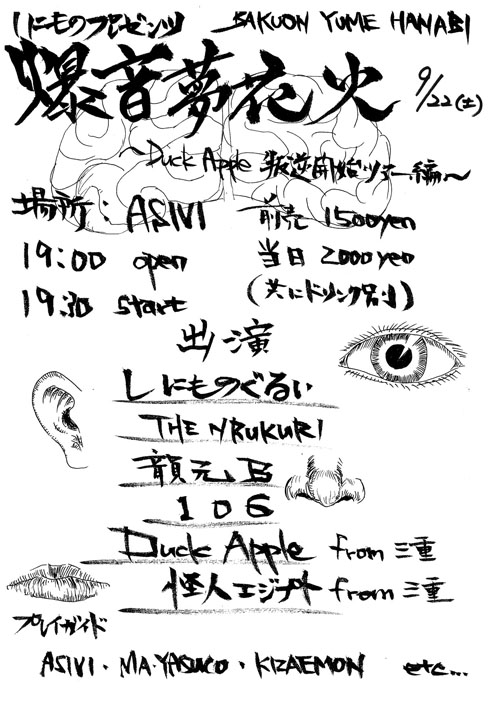 しにものプレゼンツ BAKUON YUME HANABI
爆音夢花火 9/22(土)
〜Duck Apple 叛逆開始ツアー編〜
場所:ASIVI 前売 1500yen
19:00 open 当日 2000yen
19:30 start (共にドリンク別)
出演
しにものぐるい
THE NRUKURI
顔元B
106
Duck Apple from 三重
怪人エジナト from 三重
プレイガイド
ASIVI・MA-YASUCO・KIZAEMON etc...